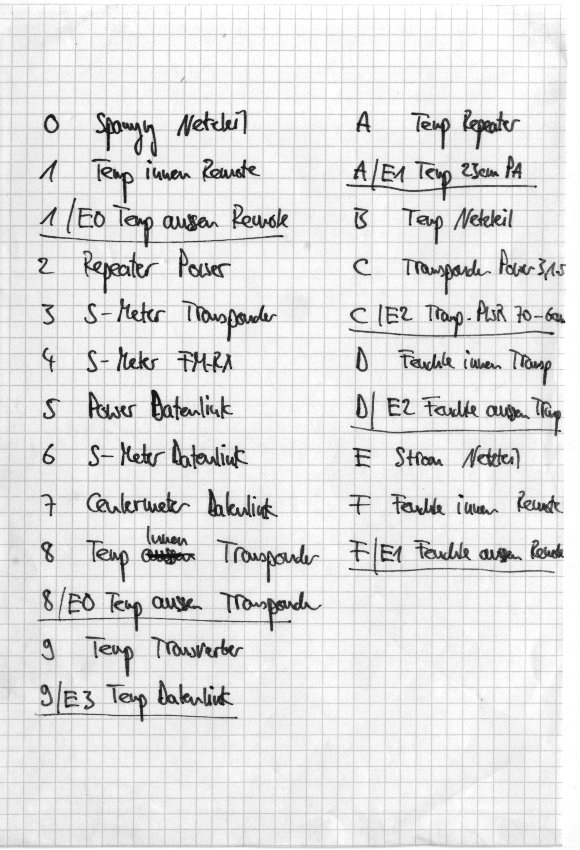 0 Spannung Netzteil
1 Temp innen Remote
1/E0 Temp aussen Remote
2 Repeater Power
3 S-Meter Transponder
4 S-Meter FM-RX
5 Power Datenlink
6 S-Meter Datenlink
7 Centermeter Datenlink
8 Temp Innen Transponder
8/E0 Temp aussen Transponder
9 Temp Transverter
9/E3 Temp Datenlink
A Temp Repeater
A/E1 Temp 23cm PA
B Temp Netzteil
C Transponder Power 3,1.5
C/E2 Transp. PWR 70-6cm
D Feuchte innen Transp
D/E2 Feuchte aussen Transp
E Strom Netzteil
F Feuchte innen Remote
F/E1 Feuchte aussen Remote